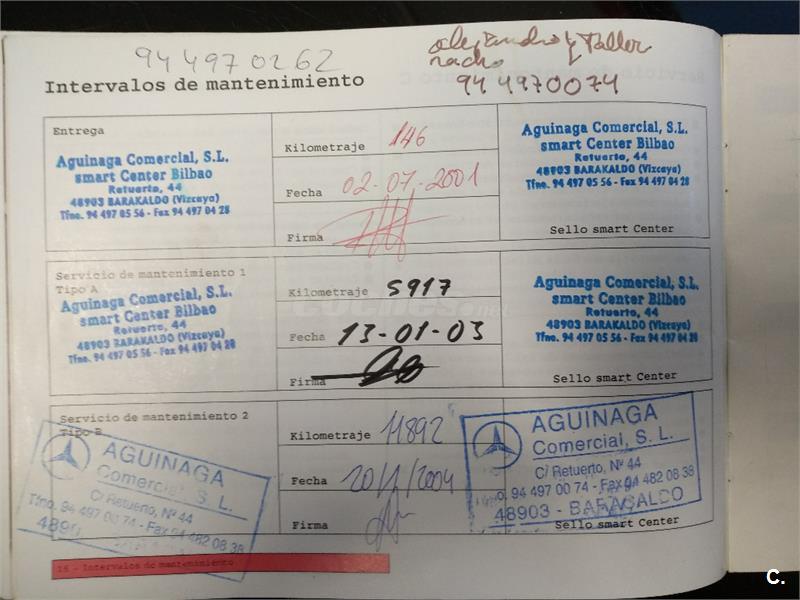 94 4970262
alejandro y Taller
nacho
94 4970074
Intervalos de mantenimiento
Entrega
Aguinaga Comercial, S.L.
smart Center Bilbao
Retuerto, 44
48903 BARAKALDO (Vizcaya)
Tfno. 94 497 05 56 - Fax 94 497 04 28
Kilometraje 146
Fecha 02-07-2001
Firma
Aguinaga Comercial, S.L.
smart Center Bilbao
Retuerto, 44
48903 BARAKALDO (Vizcaya)
Tfno. 94 497 05 56 - Fax 94 497 04 28
Sello smart Center
Servicio de mantenimiento 1
Tipo A
Aguinaga Comercial, S.L.
smart Center Bilbao
Retuerto, 44
48903 BARAKALDO (Vizcaya)
Tfno. 94 497 05 56 - Fax 94 497 04 28
Kilometraje 5917
Fecha 13-01-03
Firma
Aguinaga Comercial, S.L.
smart Center Bilbao
Retuerto, 44
48903 BARAKALDO (Vizcaya)
Tfno. 94 497 05 56 - Fax 94 497 04 28
Sello smart Center
Servicio de mantenimiento 2
Tipo B
AGUINAGA
Comercial, S. L.
C/ Retuerto, Nº 44
Tfno. 94 497 00 74 - Fax 94 482 08 38
4890
Kilometraje 11892
Fecha 20/1/2004
Firma
AGUINAGA
Comercial, S. L.
C/ Retuerto, Nº 44
o. 94 497 00 74 - Fax 94 482 08 38
48903 - BARACALDO
Sello smart Center
16 - Intervalos de mantenimiento
C.